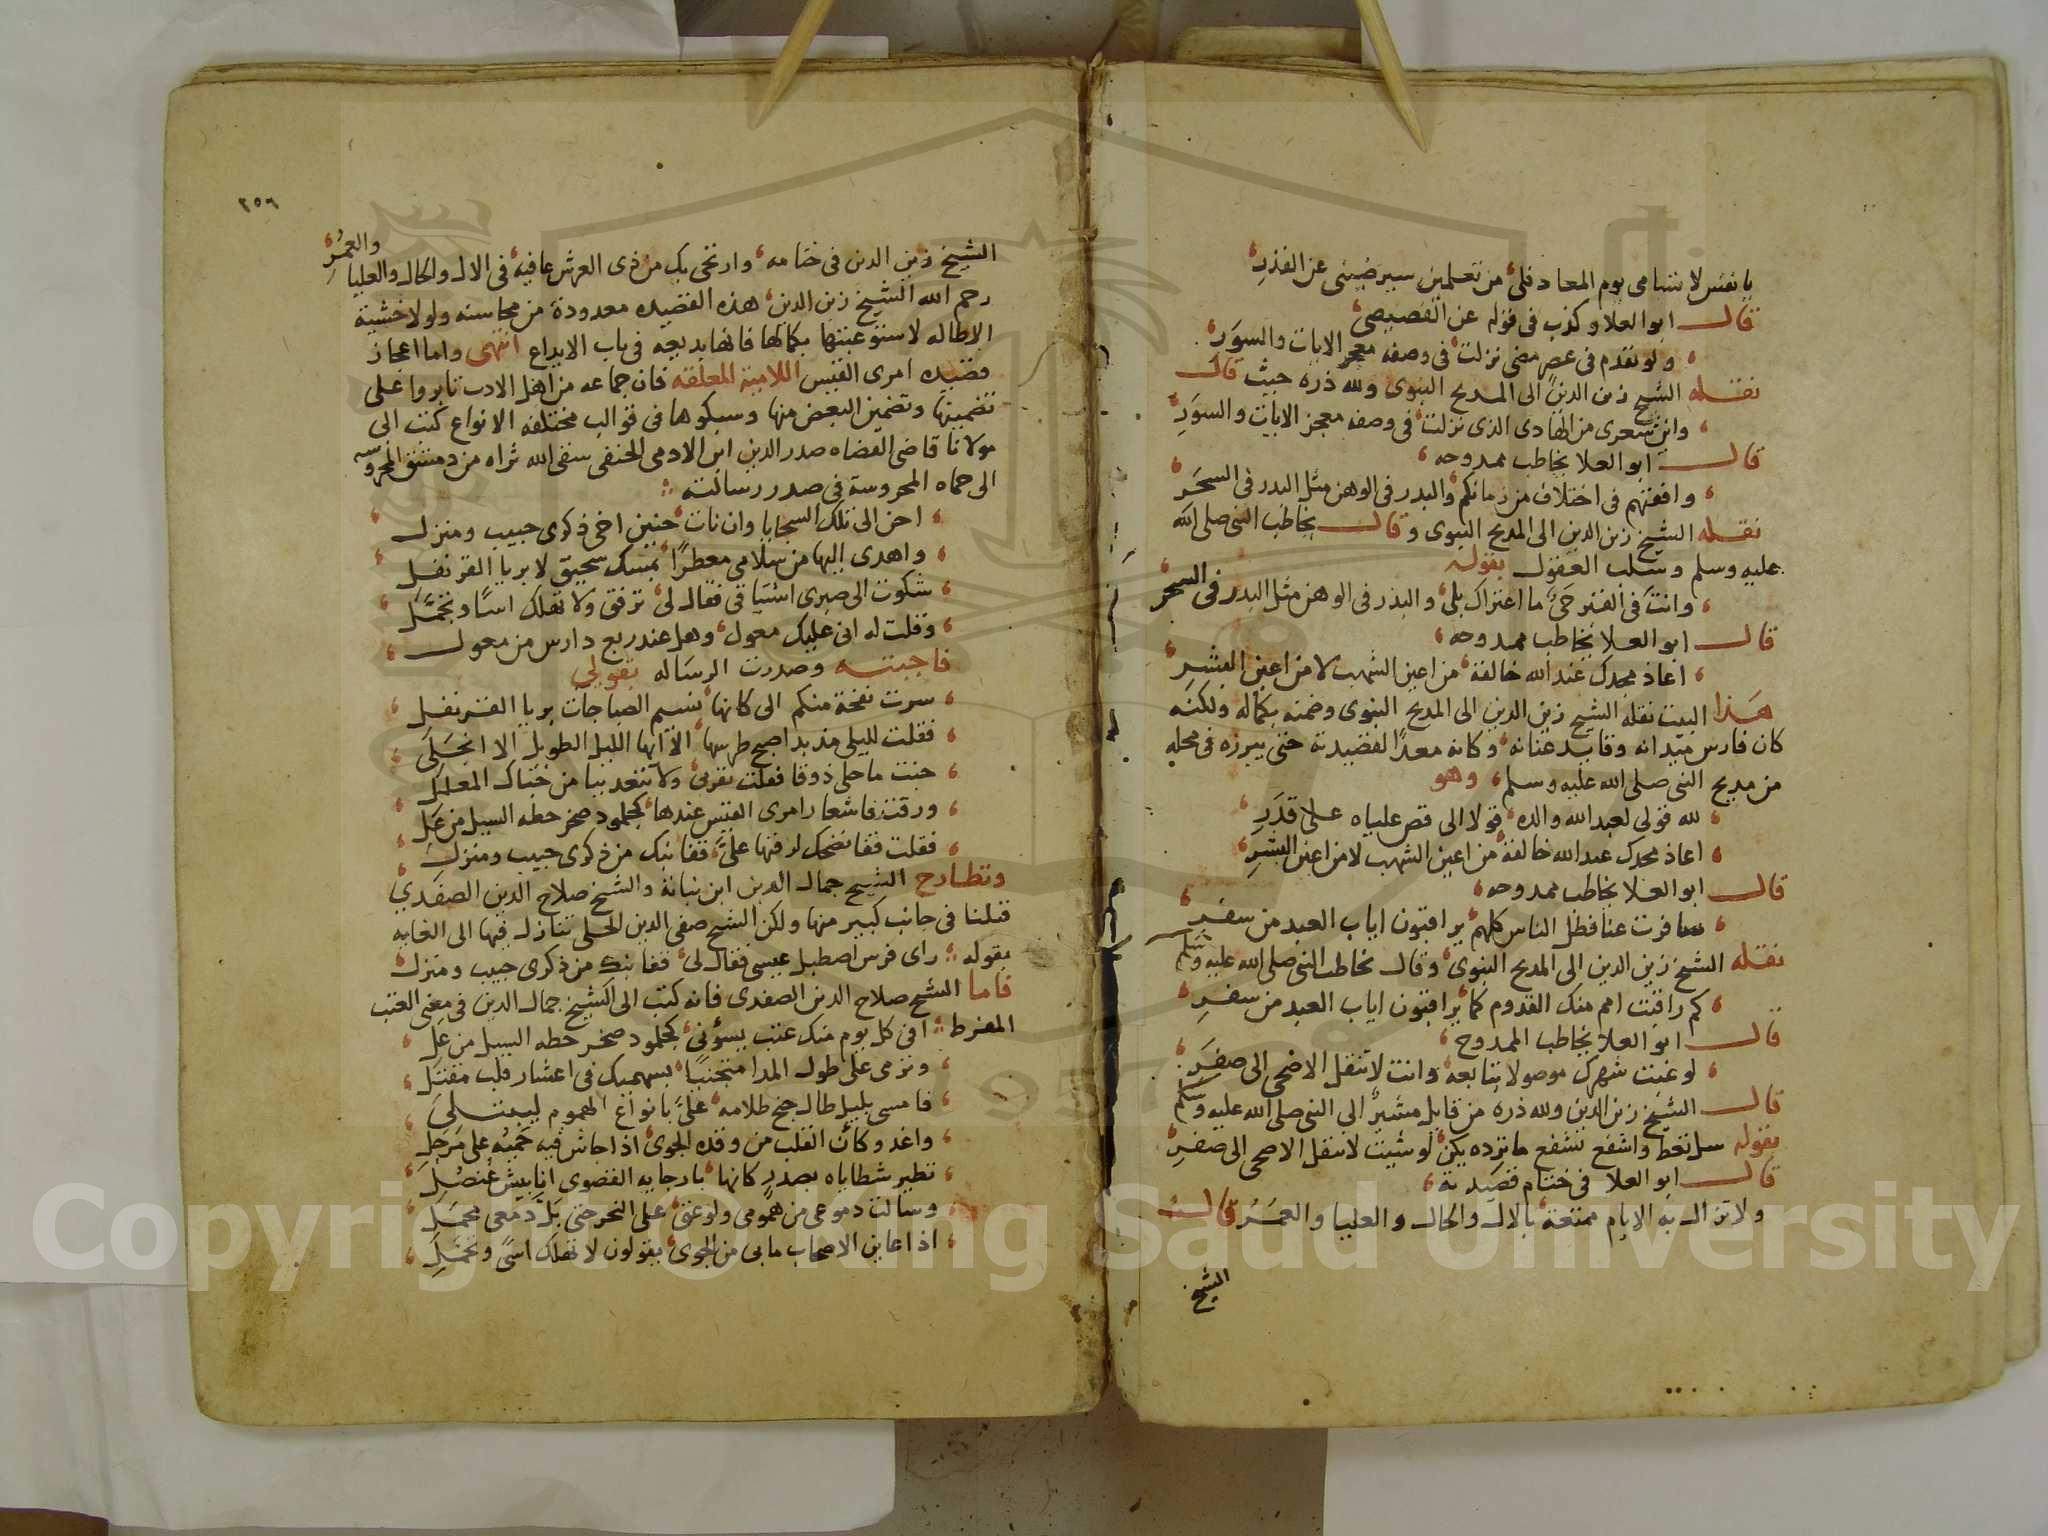 يا نفس لا تسامى يوم المعاد فلى من تعلمين سيرضينى عن القذر
قال ابو العلا وكذب فى قوله عن القصيصى
ولو تقدم فى عصر مضى نزلت فى وصفه معجز الايات والسور
نقله الشيخ زين الدين الى المديح النبوى ولله دره حيث قال
واين شعرى من الهادى الذى نزلت فى وصفه معجز الايات والسور
قال ابو العلا يخاطب ممدوحه
وافقتهم فى اختلاف من زمانكم والبدر فى الوهن مثل البدر فى السحر
نقله الشيخ زين الدين الى المديح النبوى وقال يخاطب النبى صلى الله
عليه وسلم وسلب العقول بقوله
وانت فى القبر حى ما اعتراك بلى والبدر فى الوهن مثل البدر فى السحر
قال ابو العلا يخاطب ممدوحه
اعاذ مجدك عند الله خالقه من اعين الشهب لا من اعين البشر
هذا البيت نقله الشيخ زين الدين الى المديح النبوى وضمنه بكماله ولكنه
كان فارس ميدانه وقايد عنانه وكانه معدا لقصيدته حتى يبرزه فى محله
من مديح النبى صلى الله عليه وسلم وهو
لله قولى لعبد الله والده قولا الى قص علياه على قدر
اعاذ مجدك عبد الله خالقه من اعين الشهب لا من اعين البشر
قال ابو العلا يخاطب ممدوحه
سافرت عنا فظل الناس كلهم يراقبون اياب العبد من سفر
نقله الشيخ زين الدين الى المديح النبوى وقال يخاطب النبى صلى الله عليه وسلم
كم راقبت امم منك القدوم كما يراقبون اياب العيد من سفر
قال ابو العلا يخاطب الممدوح
لو غبت شهرك موصولا بتابعه وانت لانتقل الاضحى الى صفر
قال الشيخ زين الدين ولله دره من قايل مشيرا الى النبى صلى الله عليه وسلم
بقوله سل تعط واشفع تشفع ما ترده يكن لو شيت لانتقل الاضحى الى صفر
قال ابو العلا فى ختام قصيدته
ولا تزال به الايام ممتعة بالال والحال والعليا والعمر قال
الشيخ
٢٥٦
الشيخ زين الدين فى ختامه وارتجى بك من ذى العرش عافيه فى الال والحال والعليا والعمر
رحم الله الشيخ زين الدين هذه القصيده معدودة من محاسنه ولولا خشية
الاطاله لاستوعبتها بكمالها فانها بديعه فى باب الايداع انتهى واما اعجاز
قصيده امرى القيس اللامية المعلقه فان جماعه من اهل الادب ثابروا على
تضمينها وتضمين البعض منها وسبكوها فى قوالب مختلفه الانواع كتب الى
مولانا قاضى القضاه صدر الدين ابن الادمى الحنفى سقى الله ثراه من دمشق المحروسه
الى حماه المحروسة فى صدر رسالته
احن الى تلك السجايا وان نات حنين اخى ذكرى حبيب ومنزل
واهدى اليها من سلامى معطرا بمسك سحيق لا بريا القرنفل
شكوت الى صبرى اشتياقى فقال لى ترفق ولا تهلك اسا وتجمل
وقلت له انى عليك معول وهل عند ربع دارس من معول
فاجبته وصدرت الرساله بقولى
سرت نفحة منكم الى كانها نسيم الصبا جات بريا القرنفل
فقلت لليلى مذ بدا صبح طرسها الا ايها الليل الطويل الا انجلى
جنت ما حلى ذوقا فقلت تقربى ولا تبعدينا من جناك المعلل
ورقت فاشعار امرى القيس عندها كجلمود صخر حطه السيل من عل
فقلت قفا نضحك لرقتها على قفا نبك من ذكرى حبيب ومنزل
وتطارح الشيخ جمال الدين ابن نباتة والشيخ صلاح الدين الصفدى
قبلنا فى جانب كبير منها ولكن الشيخ صفى الدين الحلى تنازل فيها الى الغايه
بقوله راى فرس اصطبل عيسى فقال لى قفا نبك من ذكرى حبيب ومنزل
فاما الشيخ صلاح الدين الصفدى فانه كتب الى الشيخ جمال الدين فى معنى العتب
المفرط افى كل يوم منك عتب يسؤنى كجلمود صخر حطه السيل من عل
وترمى على طول المدا متجنبا بسهميك فى اعشار قلب مقتل
فامسى بليل طال جنح ظلامه على بانواع الهموم ليبتلى
واغدو كان القلب من وقده الجوى اذا جاش فيه حميه غلى مرجل
تطير شظاياه بصدر كانها بارجايه القصوى انابيش عنصل
وسالت دموعى من همومى ولوعتى على النحر حتى بل دمعى محمل
اذا عاين الاصحاب مابى من الجوى يقولون لا تهلك اسى وتجمل
Copyright © King Saud University